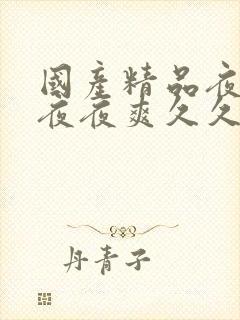 國產精品夜
夜夜爽久久
丹青子